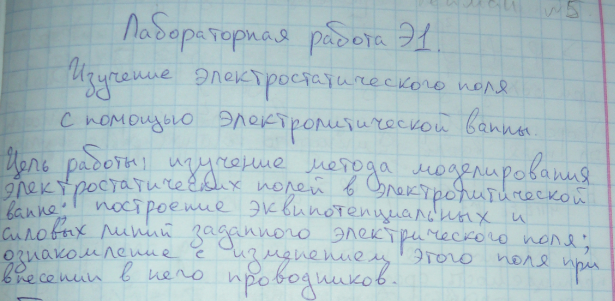 №5
Лабораторная работа Э1.
Изучение электростатического поля
с помощью электролитической ванны.
Цель работы: изучение метода моделирования
электростатических полей в электролитической
ванне; построение эквипотенциальных и
силовых линий заданного электрического поля;
ознакомление с изменением этого поля при
внесении в него проводников.